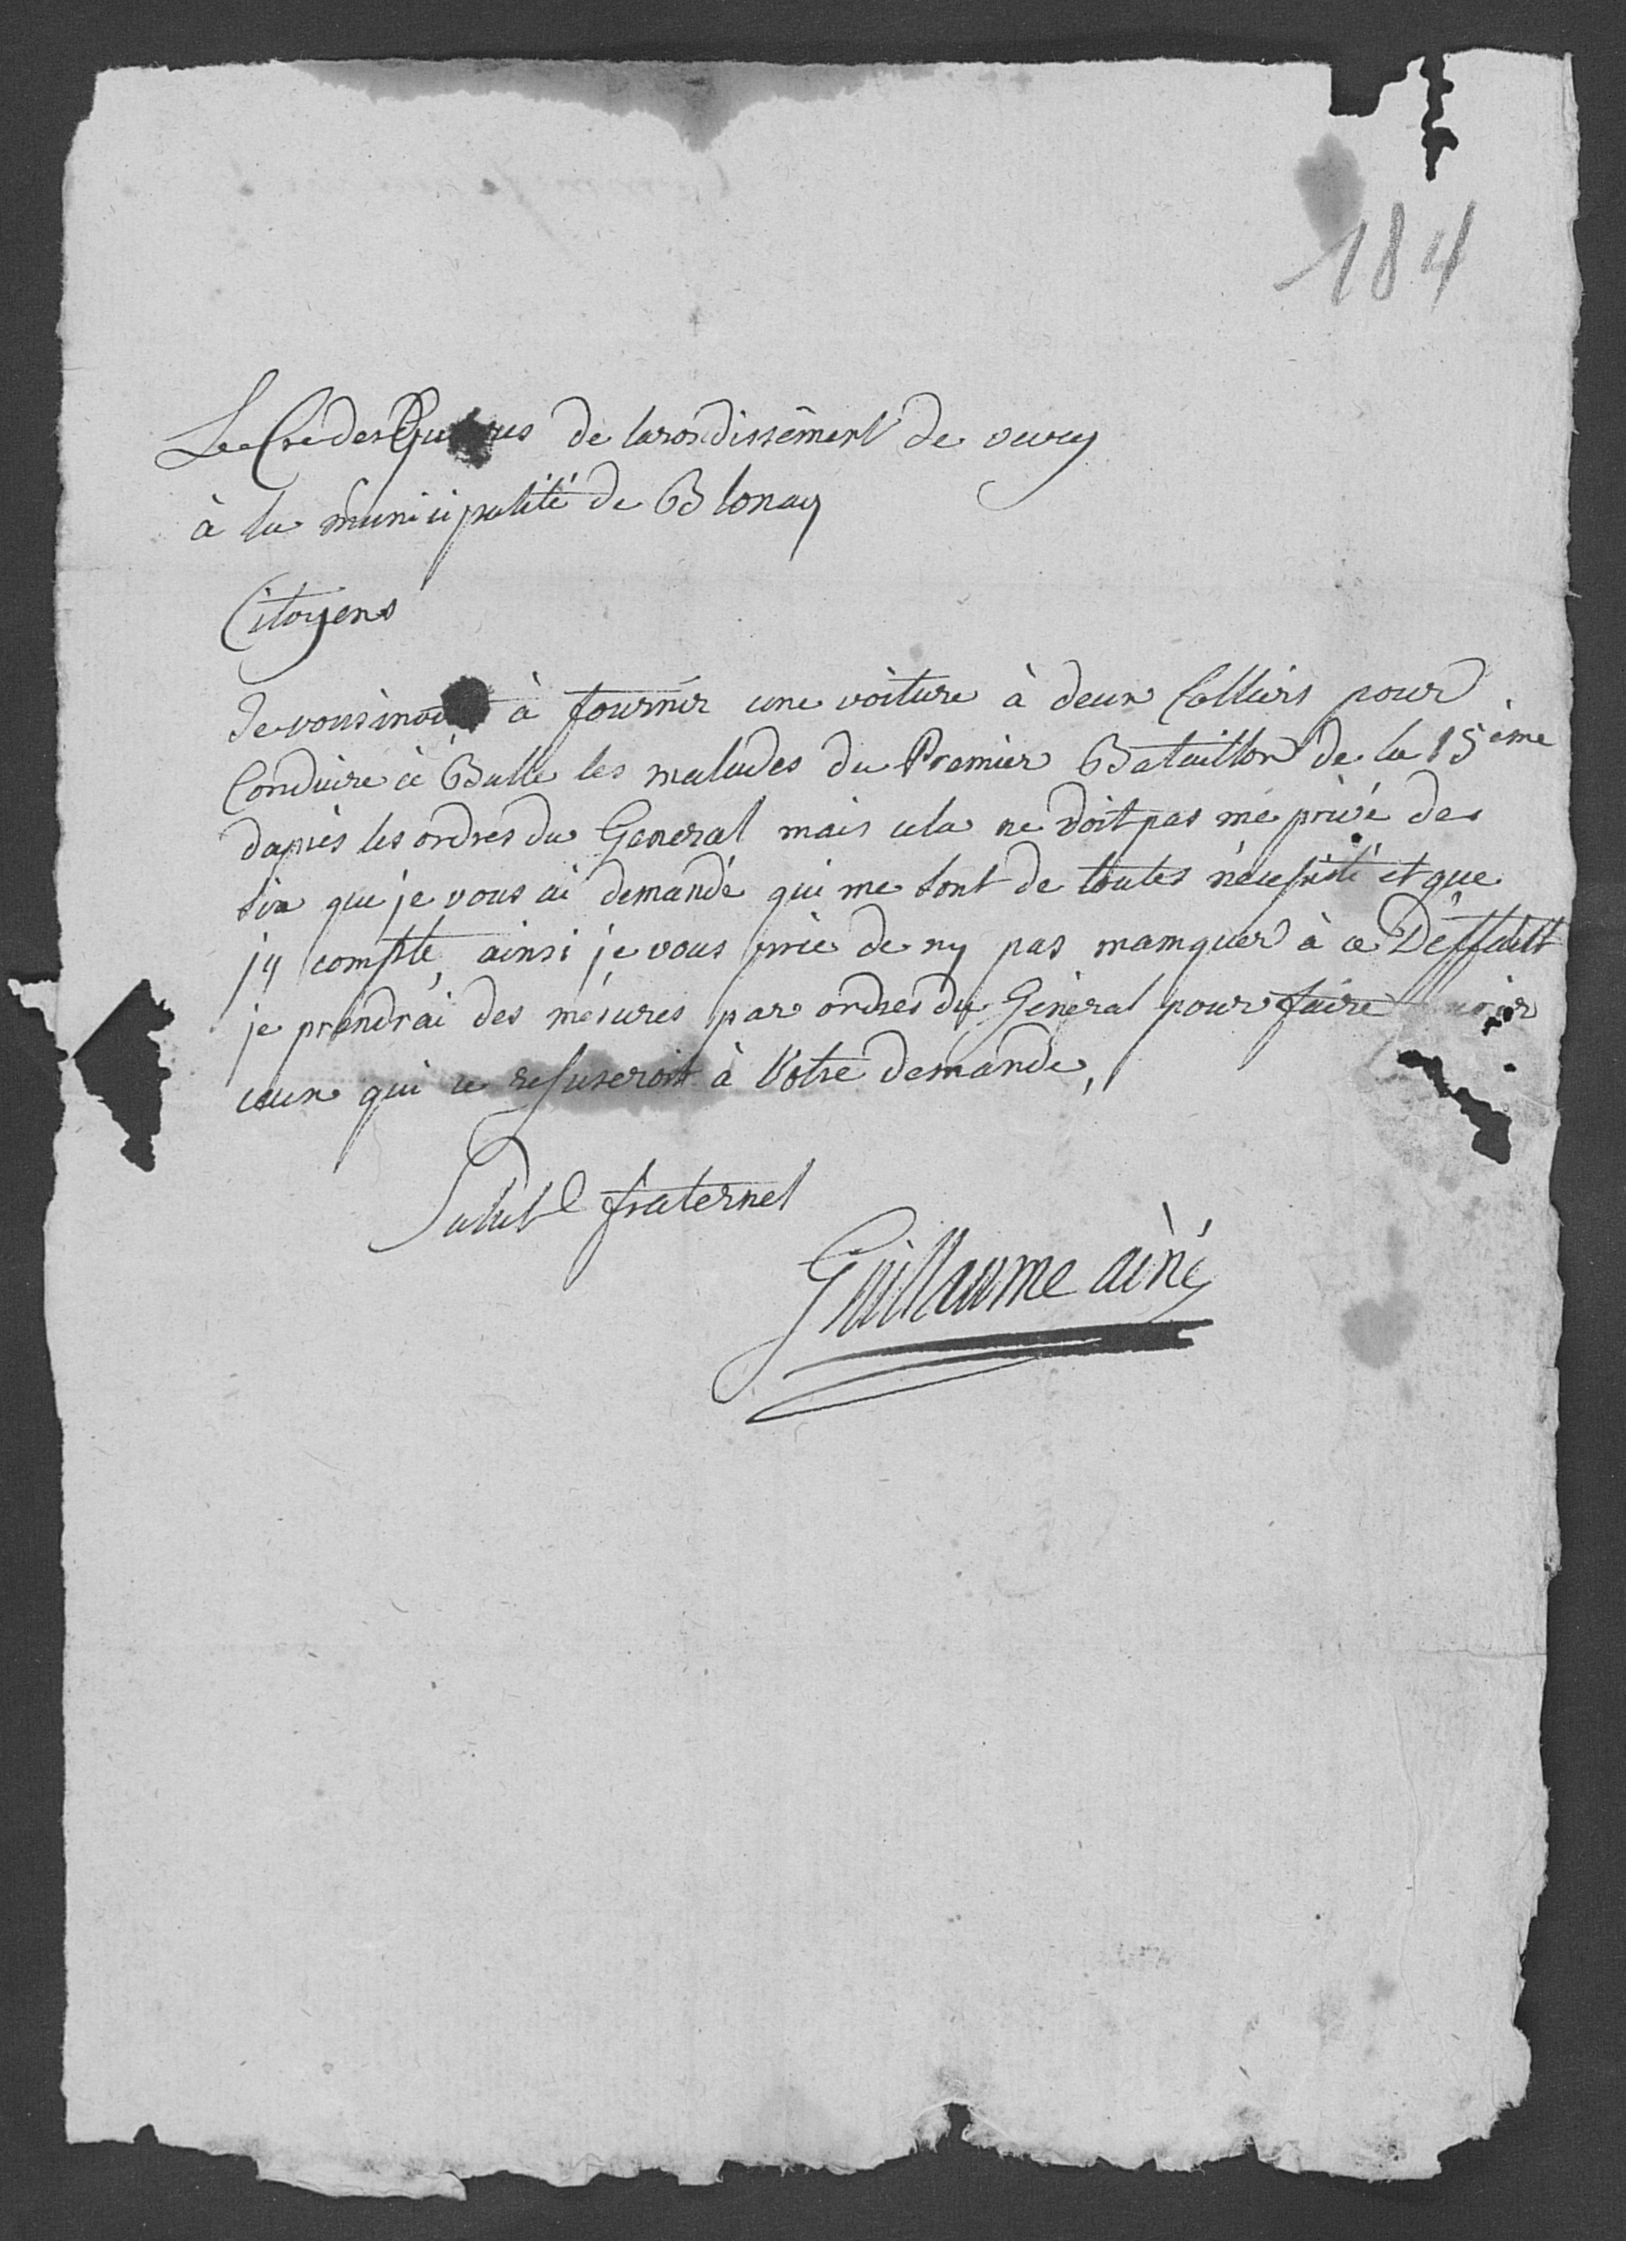 184
Le Cre des de larondissèment de vevey
à la municipalité de Blonay
Citoyens
Je vous à fournir une voiture à deux Colliers pour
Conduire à Bulle les malades du Premier Bataillon de la 15ème
dapres les ordres du General mais cela ne doit pas me privé des
six que je vous ai demandé qui me sont de toutes nécessité et que
jy compte, ainsi je vous prie de ny pas manquer à ce Deffault
je prendrai des mésures par ordres du Géneral pour faire
ceux qui ce refuseroit à Votre demande,
Salut fraternel
Guillaume ainé